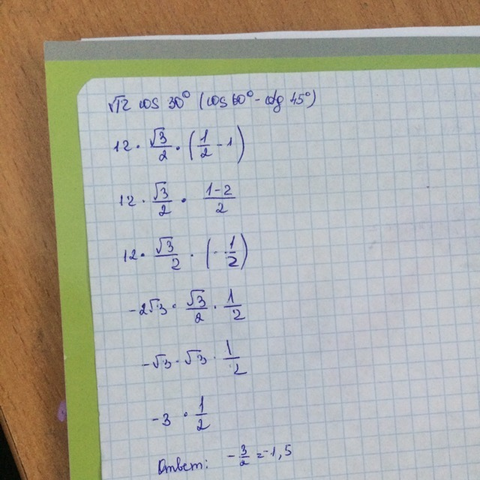 √12 cos 30° (cos 60° - ctg 45°)
12 · √3/2 · (1/2 - 1)
12 · √3/2 · (1-2)/2
12 · √3/2 · (-1/2)
-2√3 · √3/2 · 1/2
-√3 · √3 · 1/2
-3 · 1/2
Ответ: -3/2 = -1,5